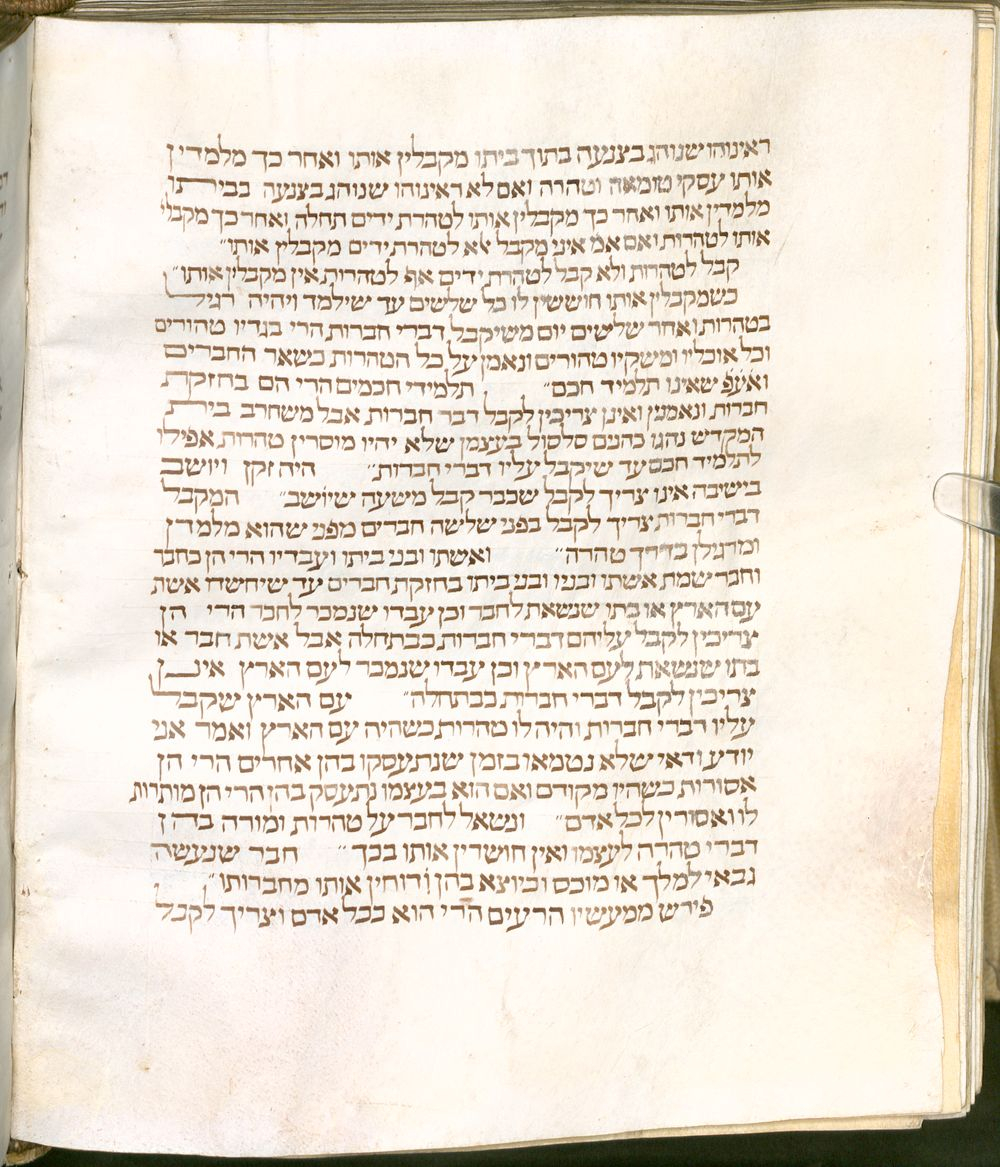 ראינוהו שנוהג בצנעה בתוך ביתו מקבלין אותו ואחר כך מלמדין
אותו עסקי טומאה וטהרה ואם לא ראינוהו שנוהג בצנעה בביתו
מלמדין אותו ואחר כך מקבלין אותו לטהרת ידים תחלה ואחר כך מקבלי
אותו לטהרות ואם אמ׳ איני מקבל אלא לטהרת ידים מקבלין אותו״
קבל לטהרות ולא קבל לטהרת ידים אף לטהרות אין מקבלין אותו״
כשמקבלין אותו חוששין לו כל שלשים עד שילמד ויהיה רגיל
בטהרות ואחר שלשים יום משיקבל דברי חברות הרי בגדיו טהורים
וכל אוכליו ומשקיו טהורים ונאמן על כל הטהרות כשאר החברים
ואעפ שאינו תלמיד חכם״ תלמידי חכמים הרי הם בחזקת
חברות ונאמנין ואינן צריכין לקבל דבר חברות אבל משחרב בית
המקדש נהגו כהנים סלסול בעצמן שלא יהיו מוסרין טהרות אפילו
לתלמיד חכם עד שיקבל עליו דברי חברות״ היה זקן ויושב
בישיבה אינו צריך לקבל שכבר קבל משעה שיושב״ המקבל
דברי חברות צריך לקבל בפני שלישה חברים מפני שהוא מלמדן
ומרגילן בדרך טהרה״ ואשתו ובני ביתו ועבדיו הרי הן כחבר
וחבר שמת אשתו ובניו ובני ביתו בחזקת חברים עד שיחשדו אשת
עם הארץ או בתו שנשאת לחבר וכן עבדו שנמכר לחבר הרי הן
צריכין לקבל עליהם דברי חברות כבתחלה אבל אשת חבר או
בתו שנשאת לעם הארץ וכן עבדו שנמכר לעם הארץ אינן
צריכין לקבל דברי חברות כבתחלה״ עם הארץ שקבל
עליו דברי חברות והיה לו טהרות כשהיה עם הארץ ואמר אני
יודע ודאי שלא נטמאו בזמן שנתעסקו בהן אחרים הרי הן
אסורות כשהיו מקודם ואם הוא בעצמו נתעסק בהן הרי הן מותרות
לו ואסורין לכל אדם״ ונשאל לחבר על טהרות ומורה בהן
דברי טהרה לעצמו ואין חושדין אותו בכך״ חבר שנעשה
גבאי למלך או מוכס וכיוצא בהן דוחין אותו מחברותו״
פירש ממעשיו הרעים הרי הוא ככל אדם וצריך לקבל